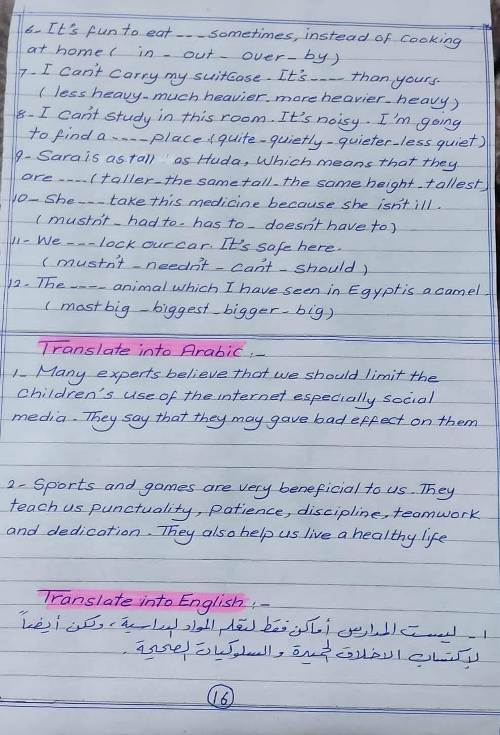 6- It's fun to eat ---- sometimes, instead of cooking
at home ( in - out - over - by )
7- I can't carry my suitcase. It's ---- than yours
( less heavy - much heavier - more heavier - heavy )
8- I can't study in this room. It's noisy. I'm going
to find a ----- place. ( quite - quietly - quieter - less quiet )
9- Sara is as tall as Huda, which means that they
are ---- ( taller - the same tall - the same height - tallest )
10- She ---- take this medicine because she isn't ill.
( mustn't - had to - has to - doesn't have to )
11- We ---- lock our car. It's safe here.
( mustn't - needn't - can't - should )
12- The ---- animal which I have seen in Egypt is a camel.
( most big - biggest - bigger - big )
Translate into Arabic :-
1- Many experts believe that we should limit the
children's use of the internet especially social
media. They say that they may gave bad effect on them
2- Sports and games are very beneficial to us. They
teach us punctuality, patience, discipline, teamwork
and dedication. They also help us live a healthy life
Translate into English :-
١- ليست المدارس أماكن فقط لتعلم المواد الدراسية ، ولكن أيضاً
لإكتساب الاخلاق الحميدة و السلوكيات الصحيحة .
16